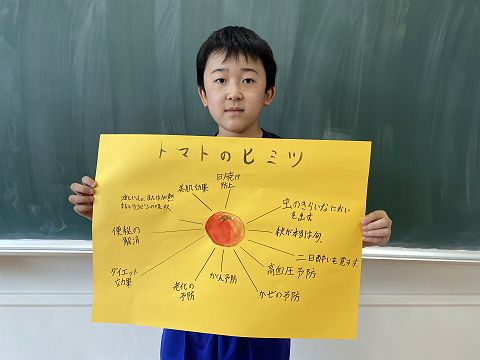 トマトのヒミツ
日焼け
防止
美肌効果
油といっしょ、または加熱
するとリコピンの吸収
便秘の
解消
ダイエット
効果
老化の
予防
がん予防
かぜの予防
高血圧予防
二日酔いも覚ます。
秋が本当は旬。
虫のきらいなにおい
を出す